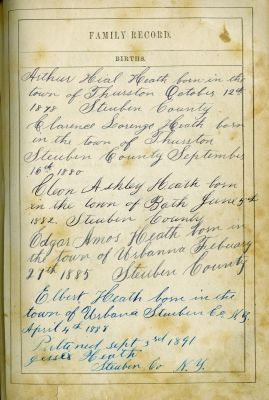 FAMILY RECORD.
BIRTHS.
Arthur Heal Heath born in the
town of Thurston October 12th
1878 Steuben County
Clarence Lorenzo Heath born
in the town of Thurston
Steuben County September
16th 1880
Cleon Ashley Heath born
in the town of Bath June 5th
1882. Steuben County
Edgar Amos Heath born in
the town of Urbanna Febuary
27th 1885 Steuben County
Elbert Heath born in the
town of Urbana Steuben Co, N.Y.
April 4th 1888
Sept 3rd 1891
Heath
Steuben Co N.Y.